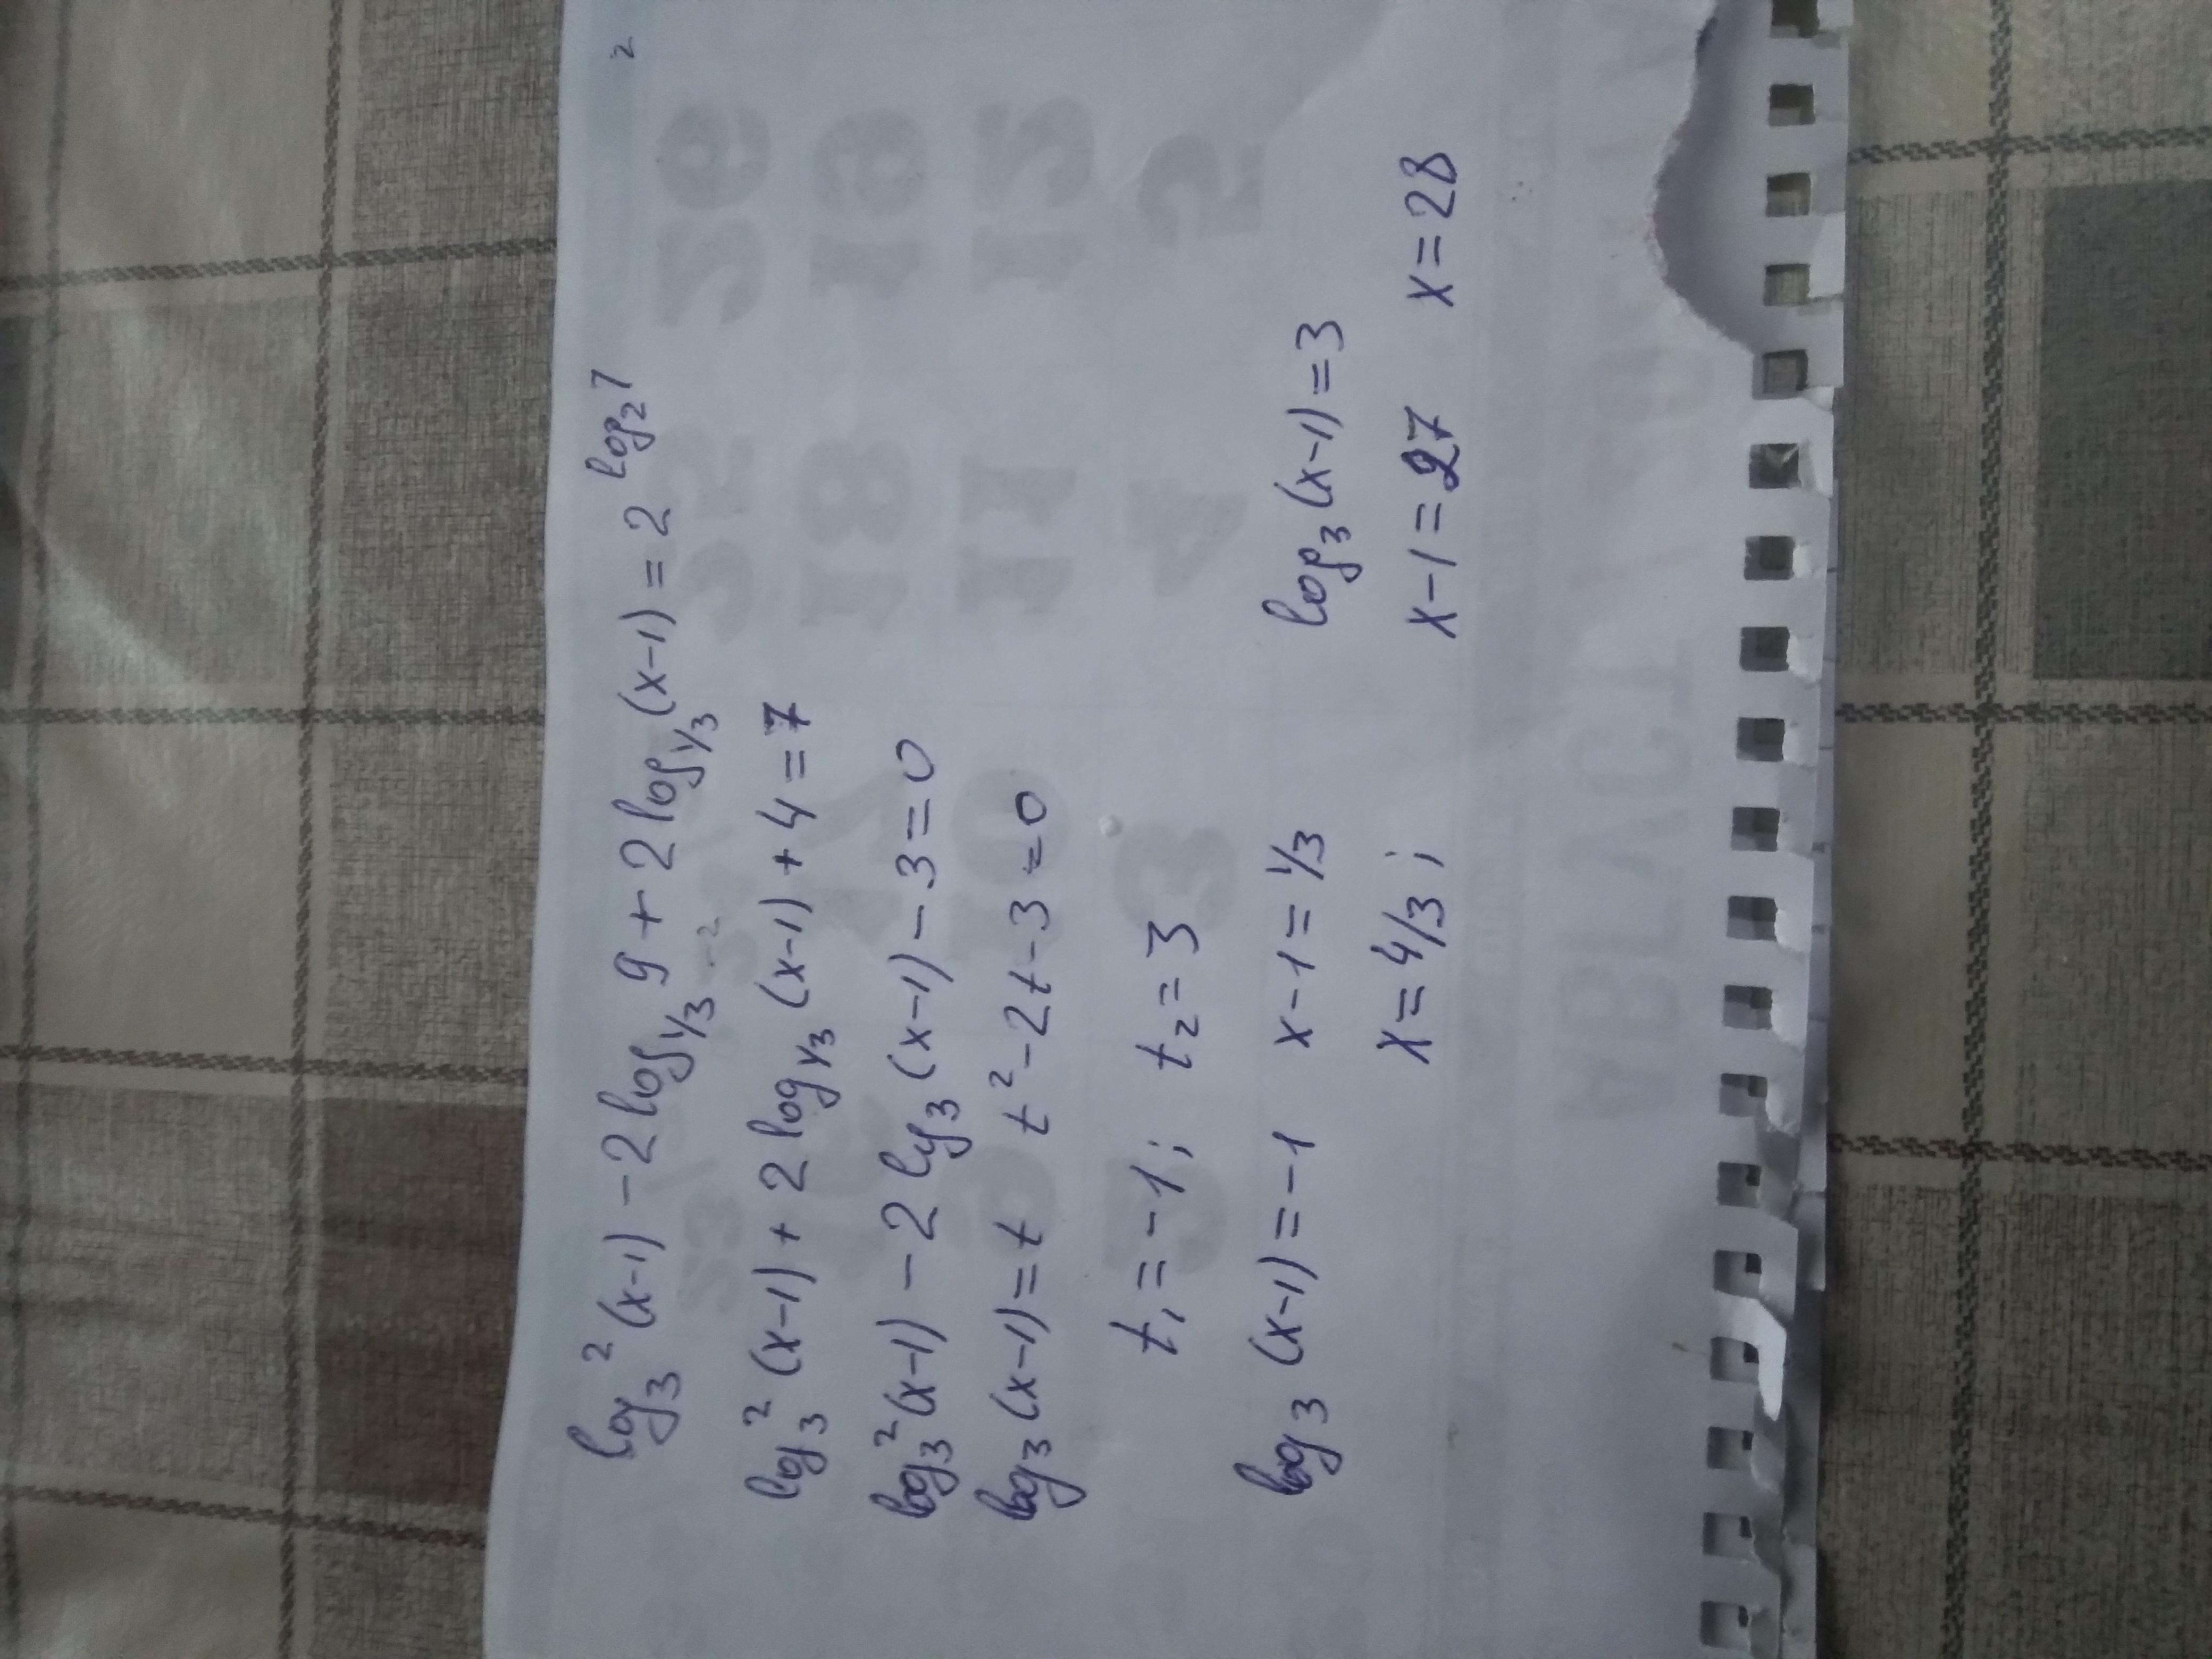 log₃²(x-1) - 2 log₁/₃ 9 + 2 log₁/₃(x-1) = 2^log₂7
-2
log₃²(x-1) + 2 log₁/₃(x-1) + 4 = 7
log₃²(x-1) - 2 log₃(x-1) - 3 = 0
log₃(x-1) = t t² - 2t - 3 = 0
t₁ = -1; t₂ = 3
log₃(x-1) = -1 x-1 = 1/3 log₃(x-1) = 3
x = 4/3; x-1 = 27 x = 28